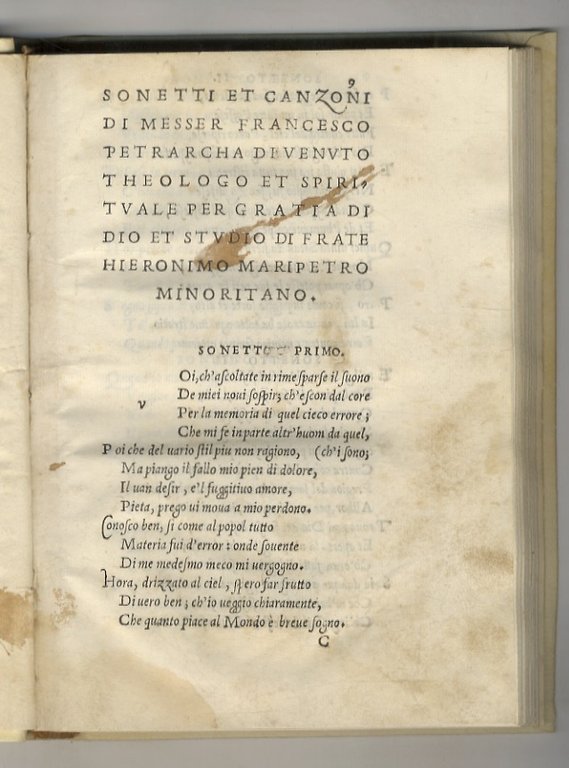 9
SONETTI ET CANZONI
DI MESSER FRANCESCO
PETRARCHA DIVENVTO
THEOLOGO ET SPIRI,
TVALE PER GRATIA DI
DIO ET STVDIO DI FRATE
HIERONIMO MARIPETRO
MINORITANO.
SONETTO PRIMO.
v Oi, ch'aſcoltate in rime ſparſe il ſuono
De miei noui ſoſpir; ch'eſcon dal core
Per la memoria di quel cieco errore;
Che mi fe in parte altr'huom da quel,
Poi che del uario ſtil piu non ragiono, (ch'i ſono;
Ma piango il fallo mio pien di dolore,
Il uan deſir, e'l fuggitiuo amore,
Pieta, prego ui moua a mio perdono.
Conoſco ben, ſi come al popol tutto
Materia fui d'error: onde ſouente
Di me medeſmo meco mi uergogno.
Hora, drizzato al ciel, ſpero far frutto
Di uero ben; ch'io ueggio chiaramente,
Che quanto piace al Mondo è breue ſogno.
C